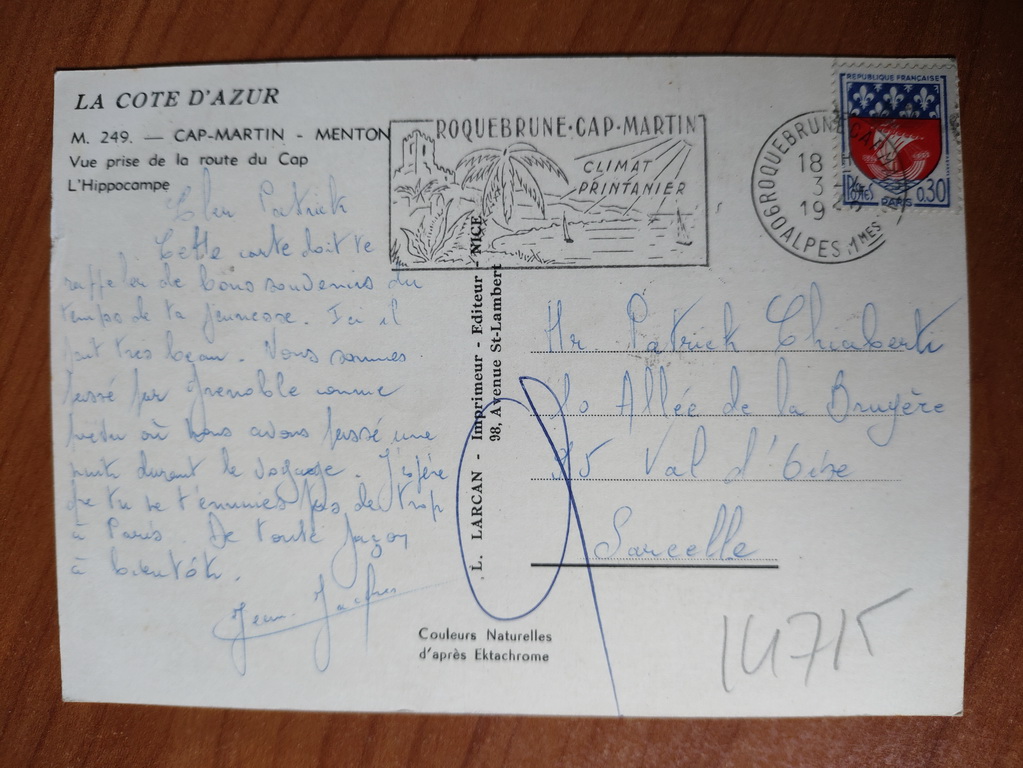 LA COTE D'AZUR
M. 249. — CAP-MARTIN - MENTON
Vue prise de la route du Cap
L'Hippocampe
ROQUEBRUNE·CAP·MARTIN
CLIMAT
PRINTANIER
ROQUEBRUNE CAP
18 H
3-
19
ALPES MMES
REPUBLIQUE FRANÇAISE
POSTES
PARIS
0.30
Cher Patrick
Cette carte doit te
rappeler de bons souvenirs du
temps de ta jeunesse. Ici il
fait tres beau. Nous sommes
passé par Grenoble comme
prévu où nous avons passé une
nuit durant le voyage. J'espère
que tu ne t'ennuies pas de trop
à Paris. De toute façon
à bientôt.
Jean-Jacques
L. LARCAN - Imprimeur - Editeur - NICE
98, Avenue St-Lambert
Mr. Patrick Chiaberti
Allée de la Bruyère
95 Val d'Oise
Sarcelle
Couleurs Naturelles
d'après Ektachrome
14715